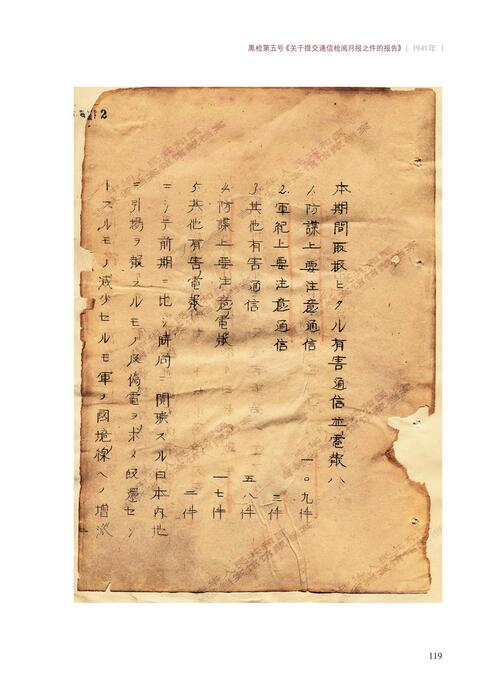 黑检第五号《关于提交通信检阅月报之件的报告》 | 1941年 |
2
本期間取扱ヒタル有害通信並電報ハ
1. 防諜上要注意通信 一〇九件
2. 軍紀上要注意通信 三件
3. 其他有害通信 五八件
4. 防諜上要注意電報 一七件
5. 其他有害電報 二件
ニシテ前期ニ比シ時局ニ関聯スル日本内地
ニ引揚ヲ報スルモノ及偽電ヲ求メ皈還セン
トスルモノ減少セルモ軍ノ國境線ヘノ増派
119